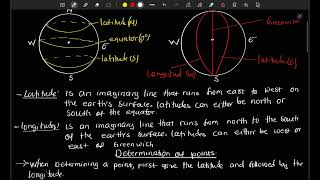 N
latitude (N)
equator (0°)
latitude (S)
W
E
S
N
Greenwich
W
E
longitud (W)
latitud (E)
S
- Latitude: Is an imaginary line that runs from east to west on
the earth's surface. latitudes can either be north or
South of the equator.
- longitude: Is an imaginary line that runs from north to the south
of the earth's surface. latitudes can either be west or
east of Greenwich
Determination of points
→ When determining a point, first give the latitude and followed by the
longitude.